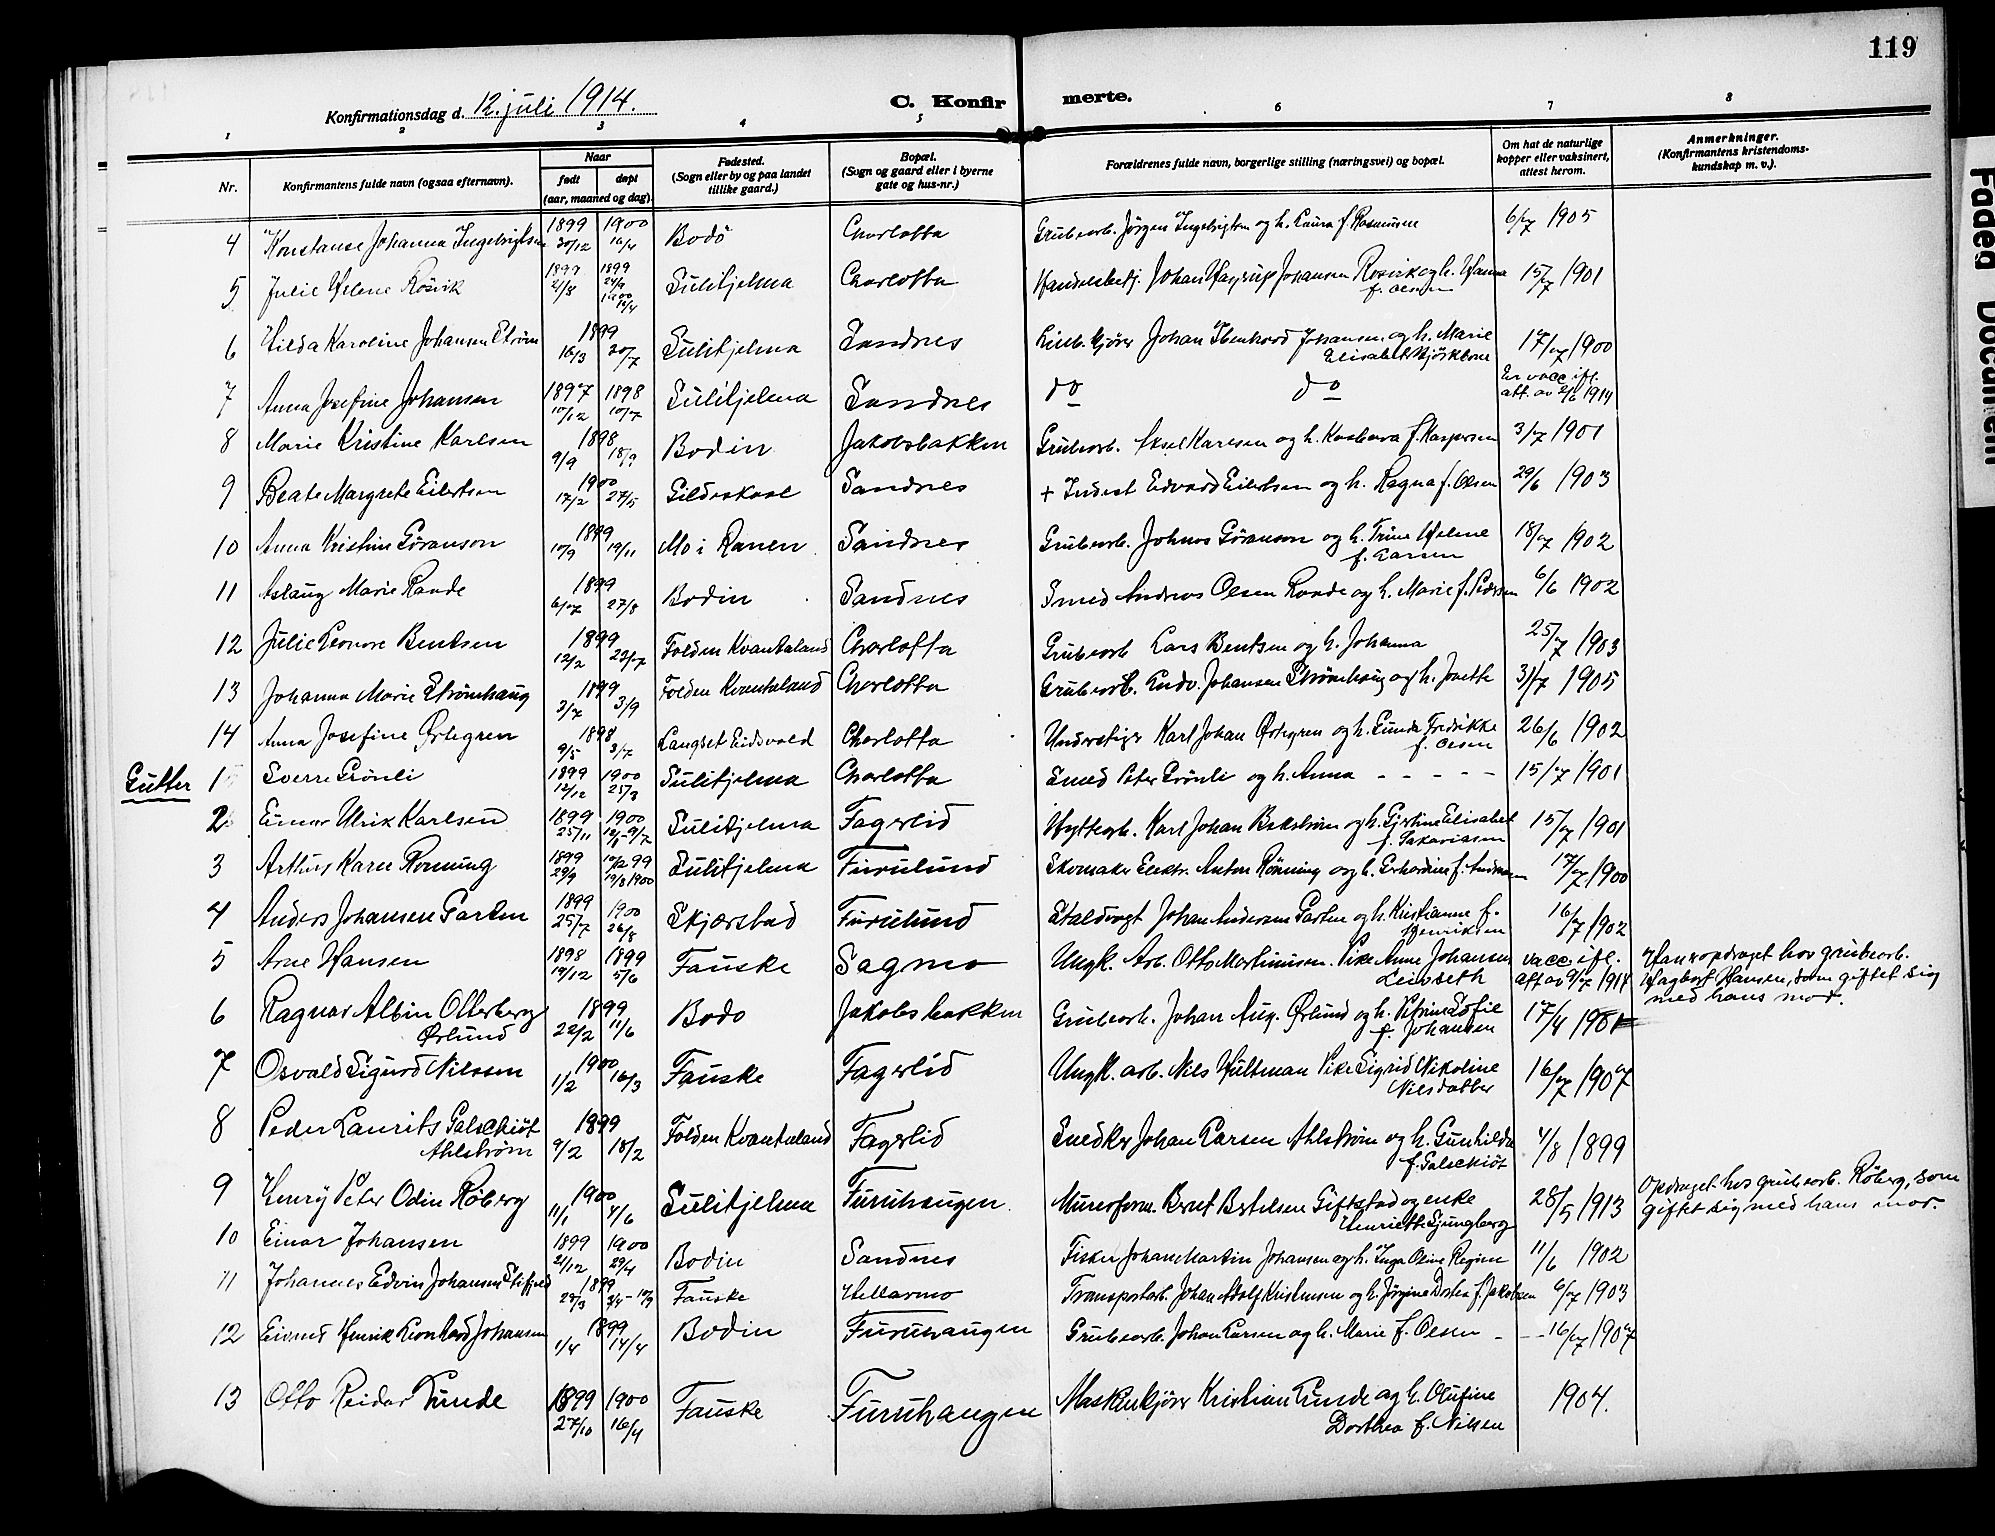 119
Konfirmationsdag d. 12. juli 1914.
C. Konfirmerte.
1 2 3 4 5 6 7 8
Nr.
Konfirmantens fulde navn (ogsaa efternavn).
Naar
født døpt
(aar, maaned og dag).
Fødested.
(Sogn eller by og paa landet
tillike gaard.)
Bopæl.
(Sogn og gaard eller i byerne
gate og hus-nr.)
Forældrenes fulde navn, borgerlige stilling (næringsvei) og bopæl.
Om hat de naturlige
kopper eller vaksinert,
attest herom.
Anmerkninger.
(Konfirmantens kristendoms-
kundskap m. v.).
4 Konstanse Johanna Ingebrigtsen 1899 30/12 1900 16/4 Bodö Charlotta Grubearb. Jörgen Ingebrigtsen og h. Laura f. Rasmussen 6/7 1905
5 Julie Helene Rösvik 1899 21/8 1899 24/9 1900 16/4 Sulitjelma Charlotta Handelsbetj. Johan Hagrup Johansen Rosvik og h. Hanna f. Olsen 15/7 1901
6 Hilda Karoline Johansen Strøm 1899 16/3 30/7 Sulitjelma Sandnes Johan Johansen og h. Marie Elisabet 17/7 1900
7 Anna Josefine Johansen 1897 10/12 1898 10/7 Sulitjelma Sandnes do do Er vacc. ifl. att. av 2/6 1914
8 Marie Kristine Karlsen 1898 9/9 18/9 Bodin Jakobsbakken Grubearb. Aksel Karlsen og h. Kasbara f. Kaspersen 3/7 1901
9 Beate Margrete Eilertsen 1900 17/2 27/5 Gildeskaal Sandnes + Inderst Edvard Eilertsen og h. Ragna f. Olsen 29/6 1903
10 Anna Kristine Göranson 1899 10/9 19/11 Mo i Ranen Sandnes Grubearb. Johnas Göranson og h. Trine Helene f. Larsen 18/7 1902
11 Aslaug Marie Rande 1899 6/7 27/8 Bodin Sandnes Smed Andreas Olsen Rande og h. Marie f. Pedersen 6/6 1902
12 Julie Leonore Bentsen 1899 12/2 23/7 Folden Kvantaland Charlotta Grubearb Lars Bentsen og h. Johanna 25/7 1903
13 Johanna Marie Strømhaug 1899 3/7 3/9 Folden Kvantaland Charlotta Grubearb. Ludv. Johansen Strømhaug og h. Joette 31/7 1905
14 Anna Josefine Ørtegren 1898 9/5 3/7 Langset Eidsvold Charlotta Understiger Karl Johan Ørtegren og h. Gunda Fredrikke f. Olsen 26/6 1902
Gutter 1 Sverre Grönli 1899 12/12 1900 25/3 Sulitjelma Charlotta Smed Peter Grönli og h. Anna - - - - - 15/7 1901
2 Einar Ulrik Karlsen 1899 25/11 1900 Sulitjelma Fagerlid Hyttearb. Karl Johan Bekstrøm og h. Gjertine Elisabet f. Sakariasen 15/7 1901
3 Arthur Karer Rönning 1899 29/9 10/12 99 19/8 1900 Sulitjelma Furulund Skomaker Elektr. Anton Rönning og h. Gerhardine f. Andersen 17/7 1900
4 Anders Johansen Garten 1899 25/7 1900 26/8 Skjærstad Furulund Staldvogt Johan Andersen Garten og h. Kristianne f. Henriksen 16/7 1902
5 Arne Hansen 1898 19/12 1899 5/6 Fauske Sagmo Ungk. Arb. Otto Martinussen. Pike Anne Johansen Leivseth vacc. ifl. att av 9/7 1914 Han er opdraget hos grubearb. Hagbart Hansen, som giftet sig med hans mor.
6 Ragnar Albin Otterberg Ørlund 1899 22/2 11/6 Bodo Jakobsbakken Grubearb. Johan Aug. Ørlund og h. Petrine Sofie f. Johansen 17/4 1901
7 Osvald Sigurd Nilssen 1900 1/2 16/3 Fauske Fagerlid Ungk. arb. Nils Hultman Pike Sigrid Nikoline Nilsdatter 16/7 1907
8 Peder Laurits Galschiöt Ahlström 1899 9/2 18/2 Folden Kvantaland Fagerlid Snedker Johan Larsen Ahlström og h. Gunhilda f. Galschiöt 4/8 1899
9 Henry Peter Odin Röberg 1900 11/1 4/6 Sulitjelma Furuhaugen. Murerform. Beret Bertelsen Giftstad og enke Henriette Ljungberg 28/5 1913 Opdraget hos grubearb. Röberg, som giftet sig med hans mor.
10 Einar Johansen 1899 21/12 1900 29/4 Bodin Sandnes Fisker Johan Martin Johansen og h. Inga Oline Regine 11/6 1902
11 Johannes Edvin Johansen 1899 23/3 Fauske Hellarmo Transportarb. Johan Adolf Kristensen og h. Jørgine Dortea f. Jakobsen 6/7 1903
12 Eivind Henrik Leonhard Johansen 1899 1/4 14/4 Bodin Furuhaugen Grubearb. Johan Larsen og h. Marie f. Olsen - - - 16/7 1907
13 Otto Reidar Lunde 1899 27/10 1900 16/4 Fauske Furuhaugen Maskinkjörer Kristian Lunde og h. Olufine Dorthea f. Nilsen 1904.
Faded Document